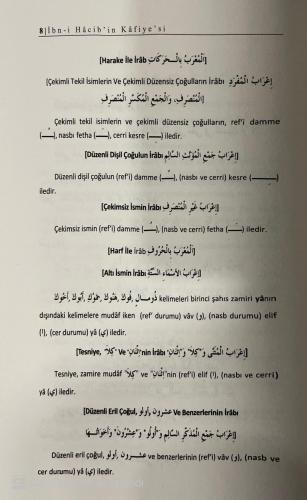 8|İbn-i Hâcib'in Kâfiye'si
[Harake İle İrâb اَلْمُعْرَبُ بِالْحَرَكَاتِ]
[Çekimli Tekil İsimlerin Ve Çekimli Düzensiz Çoğulların İrâbı إِعْرَابُ الْمُفْرَدِ
الْمُنْصَرِفِ، وَالْجَمْعِ الْمُكَسَّرِ الْمُنْصَرِفِ]
Çekimli tekil isimlerin ve çekimli düzensiz çoğulların, ref'i damme
(ـُـ), nasbı fetha (ـَـ), cerri kesre (ـِـ) iledir.
[Düzenli Dişil Çoğulun İrâbı إِعْرَابُ جَمْعِ الْمُؤَنَّثِ السَّالِمِ]
Düzenli dişil çoğulun (ref'i) damme (ـُـ), (nasbı ve cerri) kesre (ـِـ)
iledir.
[Çekimsiz İsmin İrâbı إِعْرَابُ غَيْرِ الْمُنْصَرِفِ]
Çekimsiz ismin (ref'i) damme (ـُـ), (nasb ve cerri) fetha (ـَـ) iledir.
[Harf İle İrâb اَلْمُعْرَبُ بِالْحُرُوفِ]
[Altı İsmin İrâbı إِعْرَابُ الْأَسْمَاءِ السِّتَّةِ]
أَخُوكَ، أَبُوكَ، حَمُوكِ، هَنُوكَ، فُوكَ، ذُو مَالٍ kelimeleri birinci şahıs zamiri yânın
dışındaki kelimelere mudâf iken (ref' durumu) vâv (و), (nasb durumu) elif
(ا), (cer durumu) yâ (ي) iledir.
[Tesniye, "كِلَا" Ve "اِثْنَانِ"nin İrâbı إِعْرَابُ الْمُثَنَّى وَ"كِلَا" وَ"اِثْنَانِ"]
Tesniye, zamire mudâf "كِلَا" ve "اِثْنَانِ"nin (ref'i) elif (ا), (nasbı ve cerri)
yâ (ي) iledir.
[Düzenli Eril Çoğul, أُولُو, عشرون Ve Benzerlerinin İrâbı
إِعْرَابُ جَمْعِ الْمُذَكَّرِ السَّالِمِ وَ"أُولُو" وَ"عِشْرُونَ" وَأَخَوَاتِهَا]
Düzenli eril çoğul, أولو, عشرون ve benzerlerinin (ref'i) vâv (و), (nasb ve
cer durumu) yâ (ي) iledir.